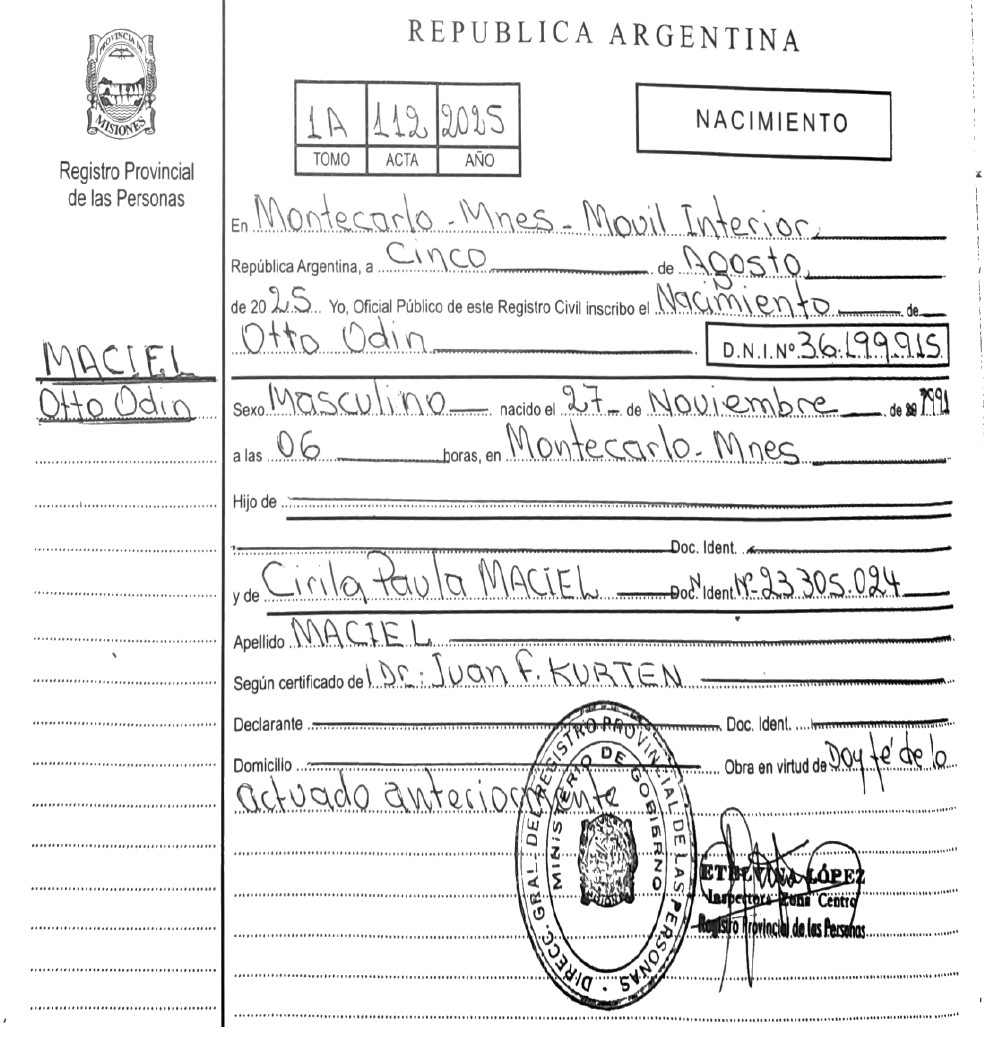 REPUBLICA ARGENTINA
PROVINCIA DE
MISIONES
Registro Provincial
de las Personas
1A 112 2025
TOMO ACTA AÑO
NACIMIENTO
En Montecarlo - Mnes - Movil Interior,
República Argentina, a Cinco de Agosto,
de 2025 Yo, Oficial Público de este Registro Civil inscribo el Nacimiento de
Otto Odin D.N.I.Nº 36.199.915
MACIEL
Otto Odin
Sexo Masculino nacido el 27 de Noviembre de 1991
a las 06 horas, en Montecarlo - Mnes
Hijo de
Doc. Ident.
y de Cirila Paula MACIEL Doc. Ident. Nº 23.305.024
Apellido MACIEL
Según certificado de Dr: Juan F. KURTEN
Declarante Doc. Ident.
Domicilio Obra en virtud de Doy fé de lo
actuado anteriormente
DIRECC. GRAL. DEL REGISTRO PROVINCIAL DE LAS PERSONAS
MINISTERIO DE GOBIERNO
LÓPEZ
Inspectora Zona Centro
Registro Provincial de las Personas